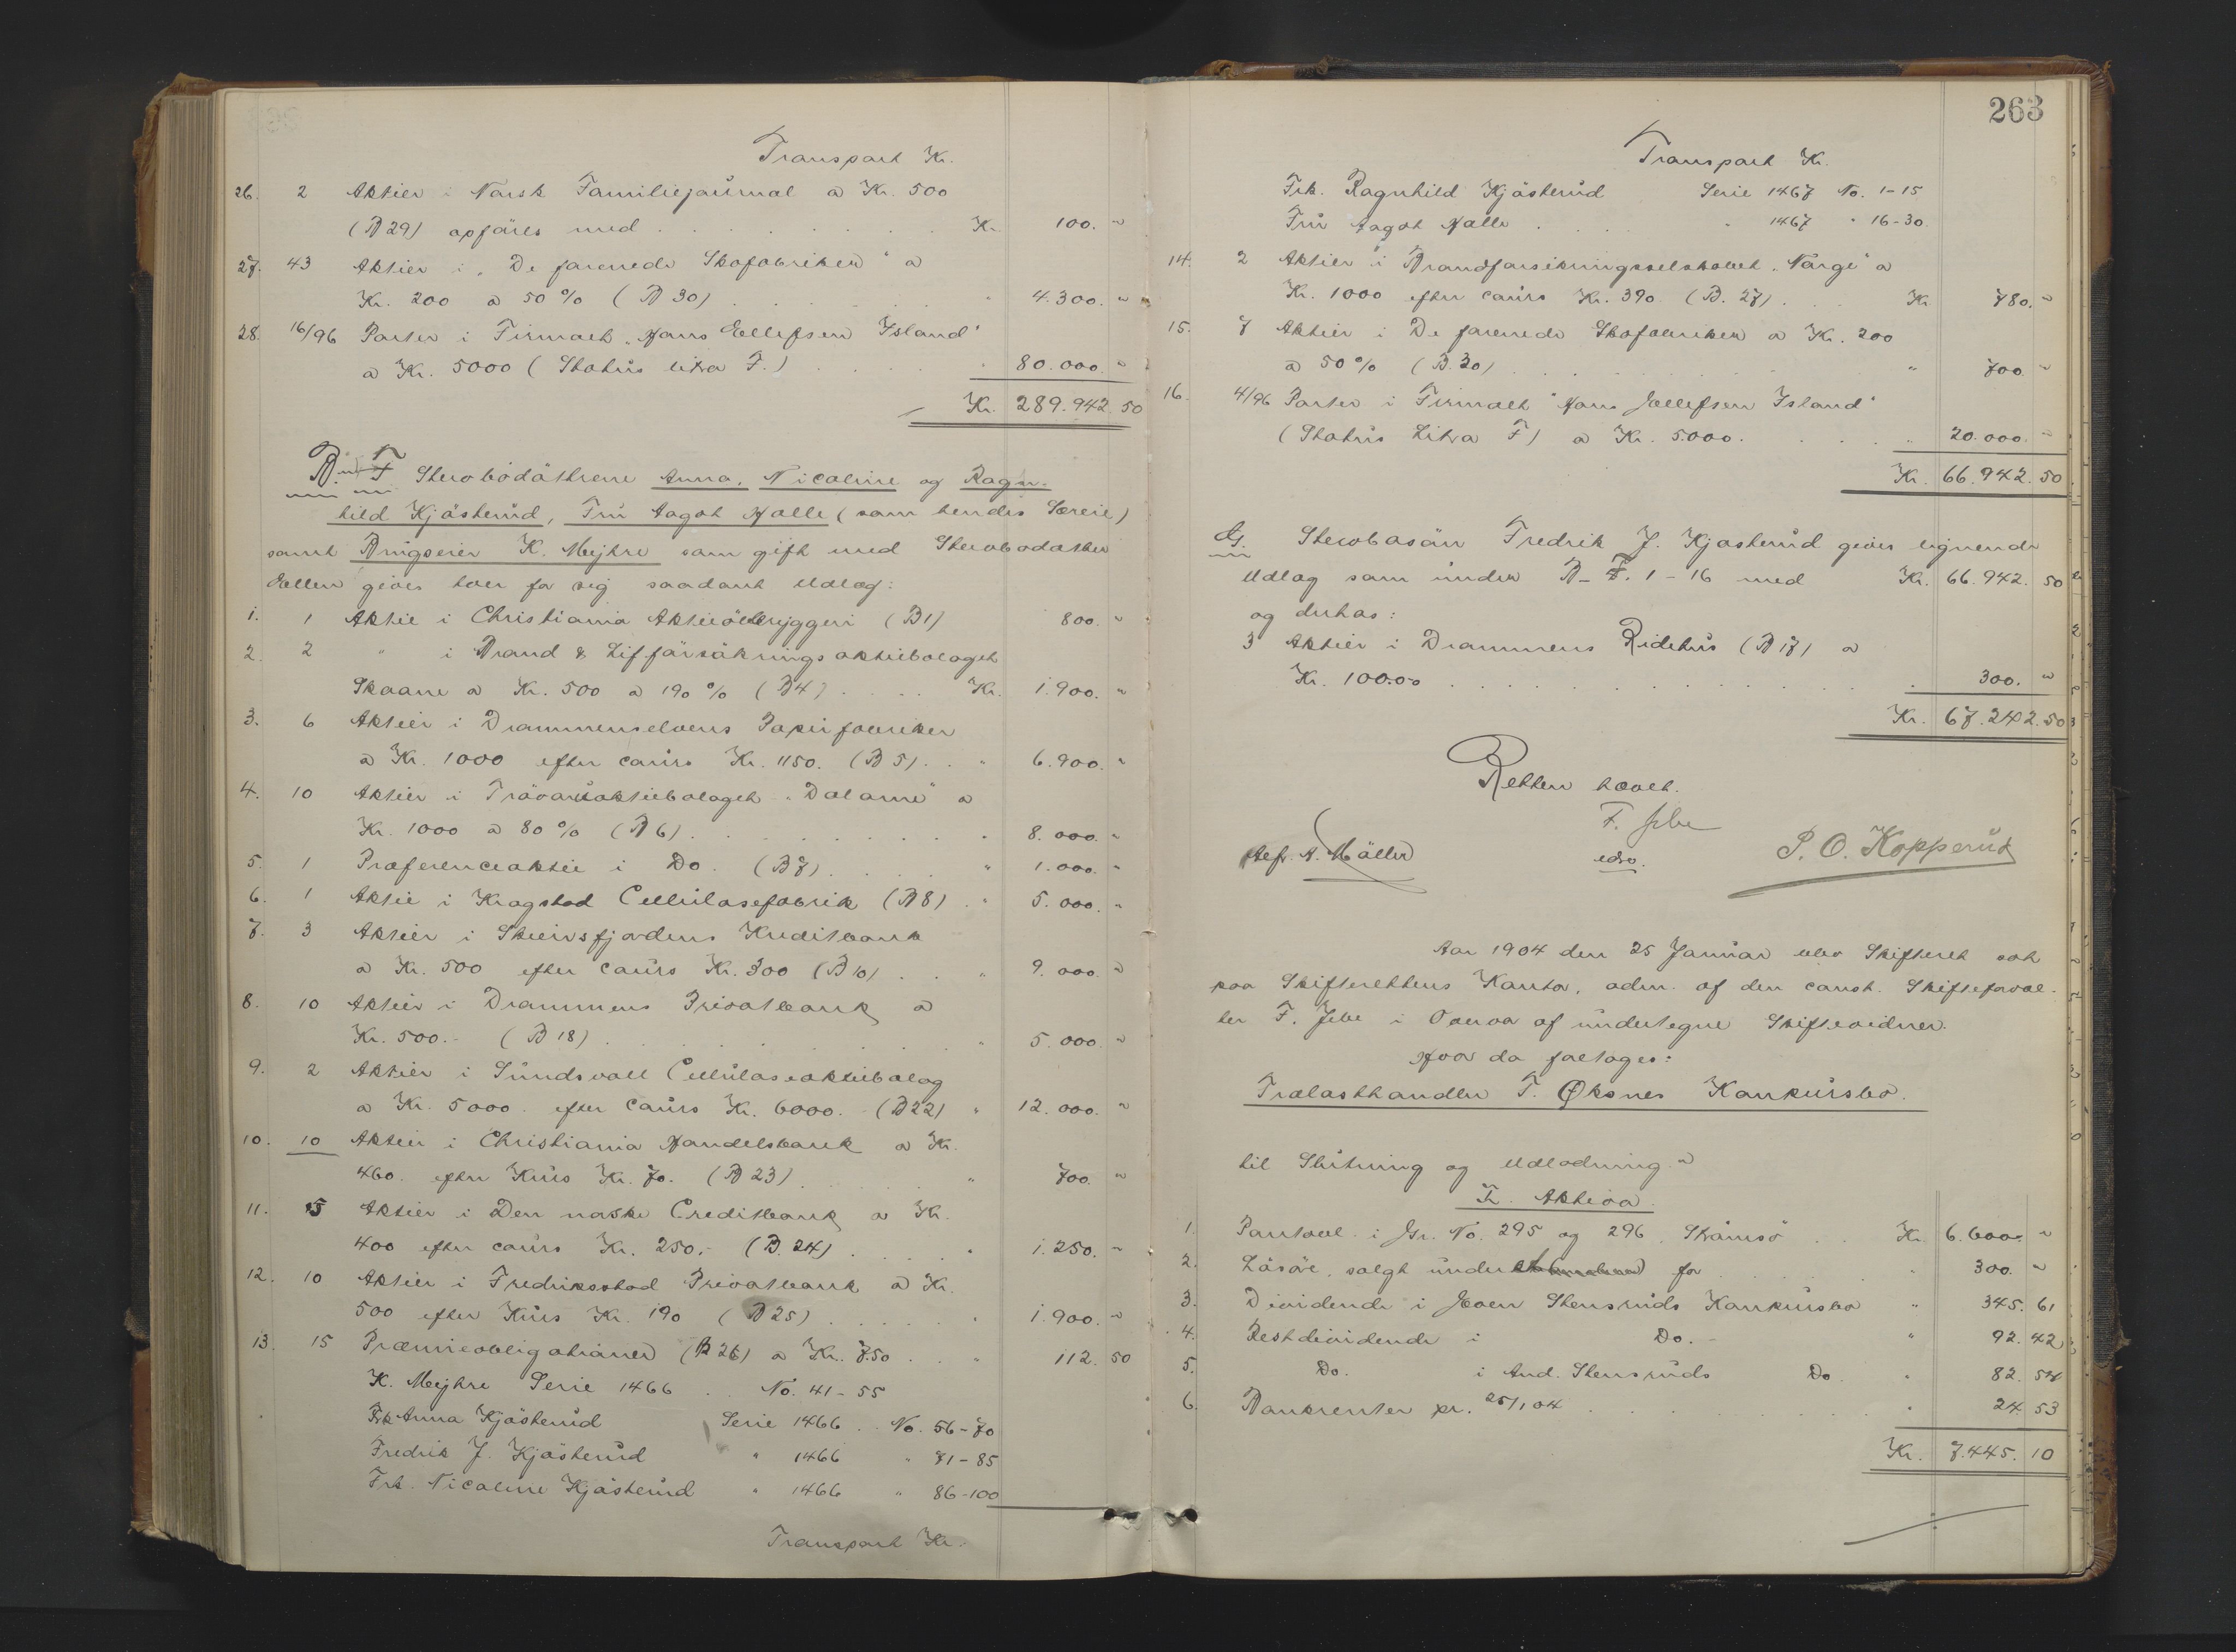 Transport Kr.
26. 2 Aktier i Norsk Familiejournal a Kr. 500
(B 29) opføres med . . . . Kr. 100. "
27. 43 Aktier i "De forenede Skofabriker" a
Kr. 200 a 50 % (B 30) . . . " 4.300. "
28. 16/96 Parter i Firmaet "Hans Ellefsen Island"
a Kr. 5000 (Status litra F.) . . . " 80.000. "
Kr. 289.942.50
B. - F. Sterbodøttrene Anna, Nicoline og Ragn-
hild Kjøsterud, Fru Aagot Halle (som hendes Særeie)
samt Brugseier K. Mejhre som gift med Sterbodatter
Ellen gives hver for sig saadant Udlæg:
1. 1 Aktie i Christiania Aktieølbryggeri (B 1) 800. "
2. 2 " i Brand & Lifförsäkrings aktiebolaget
Skaane a Kr. 500 a 190 % (B 4) . . . . Kr. 1.900. "
3. 6 Aktier i Drammenselvens Papirfabriker
a Kr. 1000 efter cours Kr. 1150. (B 5) . . " 6.900. "
4. 10 Aktier i Trävaruaktiebolaget "Dalarne" a
Kr. 1000 a 80 % (B 6) . . . " 8.000. "
5. 1 Præferenceaktie i Do. (B 7) . . . " 1.000. "
6. 1 Aktie i Krogstad Cellulosefabrik (B 8) . " 5.000. "
7. 3 Aktier i Skiensfjordens Kreditbank
a Kr. 500 efter cours Kr. 300 (B 10) . . " 9.000. "
8. 10 Aktier i Drammens Privatbank a
Kr. 500.- (B 18) . . . " 5.000. "
9. 2 Aktier i Sundsvall Cellulosaaktiebolag
a Kr. 5000. efter cours Kr. 6000. - (B 22) " 12.000. "
10. 10 Aktier i Christiania Handelsbank a Kr.
460. efter Kurs Kr. 70. (B 23) . . . " 700. "
11. 5 Aktier i Den norske Creditbank a Kr.
400 efter cours Kr. 250.- (B. 24) . . . " 1.250. "
12. 10 Aktier i Fredriksstad Privatbank a Kr.
500 efter Kurs Kr. 190 (B 25) . . . " 1.900. "
13. 15 Præmieobligationer (B 26) a Kr. 7.50 . . " 112. 50
K. Mejhre Serie 1466 . . No. 41-55
Frk Anna Kjøsterud Serie 1466 . . No. 56-70
Fredrik J. Kjøsterud " 1466 " 71-85
Frk. Nicoline Kjøsterud " 1466 " 86-100
Transport Kr.
263
Transport Kr.
Frk. Ragnhild Kjøsterud Serie 1467 No. 1-15
Fru Aagot Halle . . . " 1467 " 16-30
14. 2 Aktier i Brandforsikringsselskabet "Norge" a
Kr. 1000 efter cours Kr. 390. (B. 27) . . . Kr. 780. "
15. 7 Aktier i De forenede Skofabriker a Kr. 200
a 50 % (B. 30) . . . " 700. "
16. 4/96 Parter i Firmaet "Hans Ellefsen Island"
(Status Litra F) a Kr. 5.000. . . . " 20.000. "
Kr. 66.942.50
G. Sterbosøn Fredrik J. Kjøsterud gives lignende
Udlæg som under B - F. 1 - 16 med Kr. 66.942. 50
og desuden:
3 Aktier i Drammens Ridehus (B 17) a
Kr. 100.00 . . . 300. "
Kr. 67.242.50
Retten hævet.
F. Jebe
edsv.
Alfr. A. Møller
P. O. Kopperud
Aar 1904 den 25 Januar blev Skifteret sat
paa Skifterettens Kontor, adm. af den const. Skifteforval-
ter F. Jebe i Overvær af undertegne Skiftevidner.
Hvor da foretoges:
Trælasthandler T. Øksnes Konkursbo.
til Slutning og Udlodning. "
I. Aktiva.
1. Pantool. i Gr. No. 295 og 296 Strømsø . . Kr. 6.600. "
2. Løsøre, solgt under for . . . " 300. "
3. Dividende i Even Stensruds Konkursbo " 345. 61
4. Restdividende i Do. - " 92. 42
5. Do. i And. Stensruds Do. " 82. 54
6. Bankrenter pr. 25/1 04 . . . " 24. 53
Kr. 7.445. 10